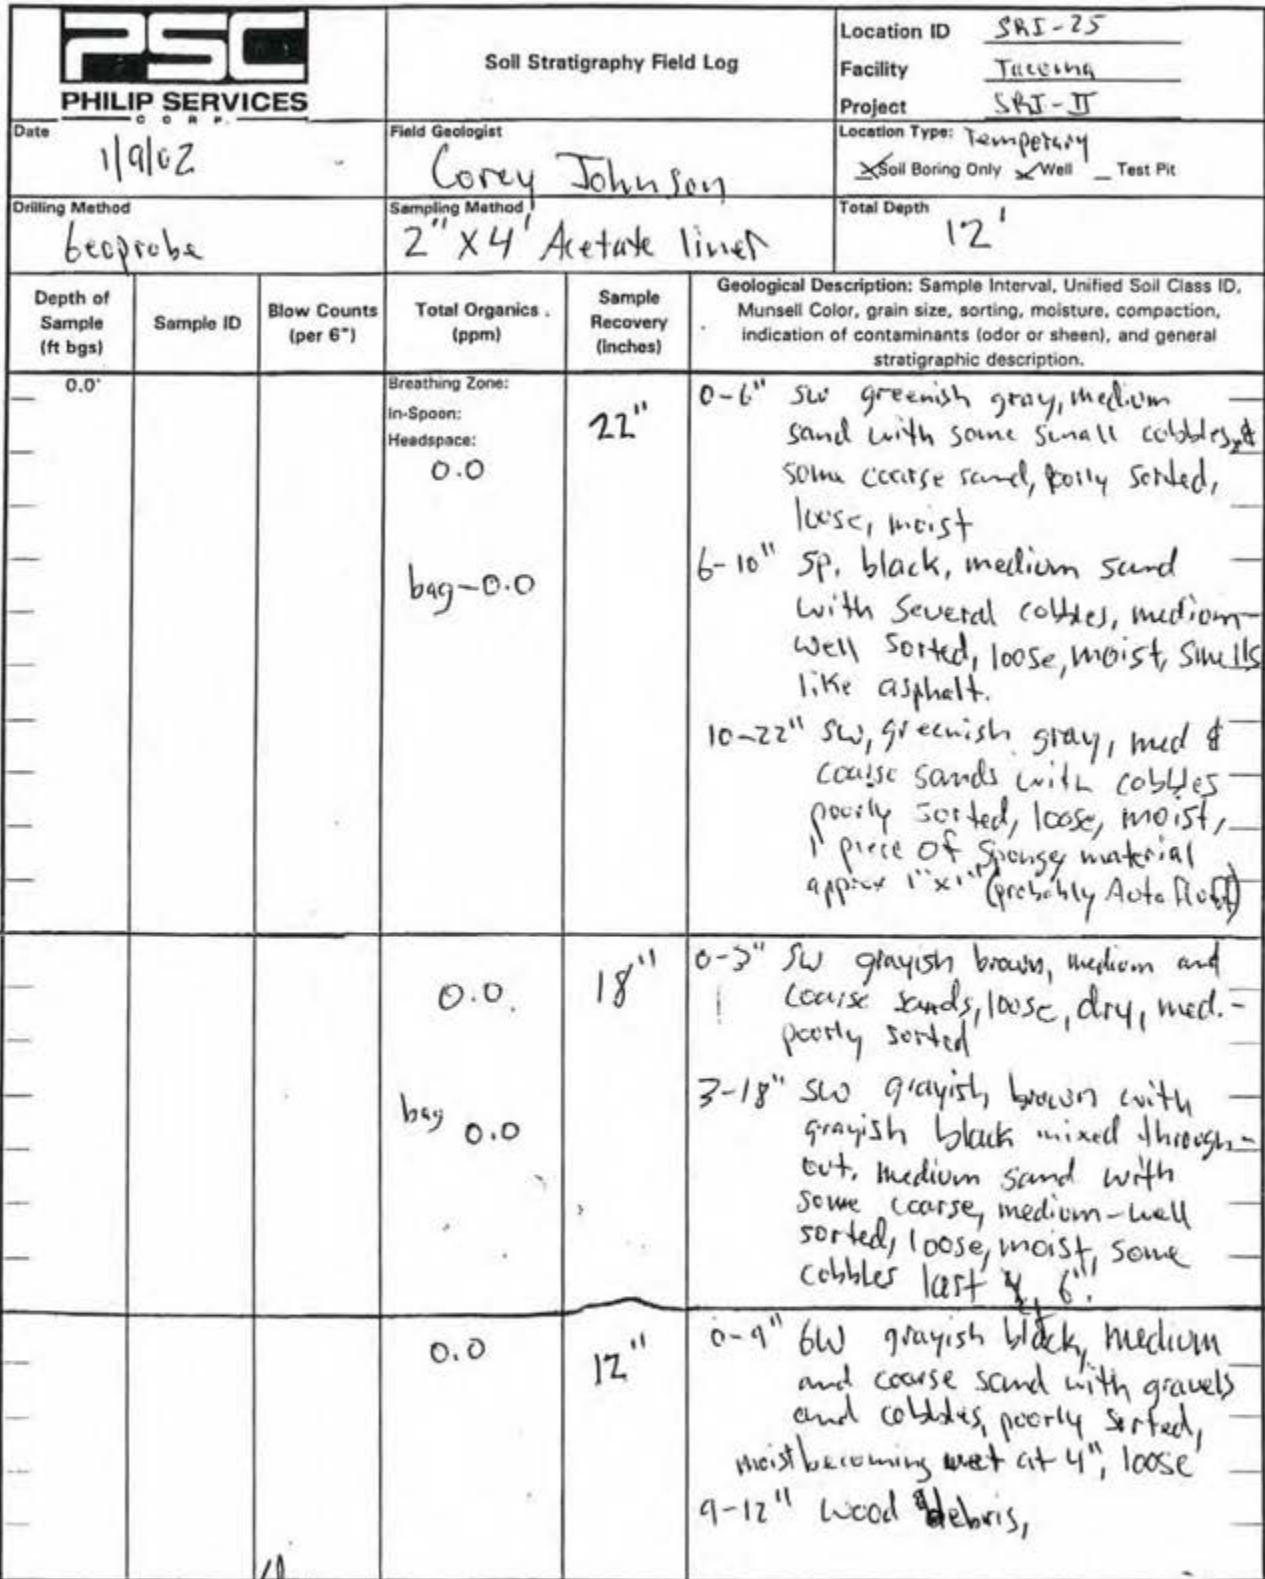 PSC
PHILIP SERVICES
CORP.
Soil Stratigraphy Field Log
Location ID SRI-25
Facility Tacoma
Project SRI-II
Date
1/9/02
Field Geologist
Corey Johnson
Location Type: Temporary
X Soil Boring Only X Well _ Test Pit
Drilling Method
Geoprobe
Sampling Method
2" X 4' Acetate liner
Total Depth
12'
Depth of
Sample
(ft bgs)
Sample ID
Blow Counts
(per 6")
Total Organics .
(ppm)
Sample
Recovery
(inches)
Geological Description: Sample Interval, Unified Soil Class ID,
Munsell Color, grain size, sorting, moisture, compaction,
indication of contaminants (odor or sheen), and general
stratigraphic description.
0.0'
Breathing Zone:
In-Spoon:
Headspace:
0.0
bag-0.0
22"
0-6" SW greenish gray, medium
sand with some small cobbles, &
some coarse sand, poorly sorted,
loose, moist
6-10" SP, black, medium sand
with several cobbles, medium-
well sorted, loose, moist, smells
like asphalt.
10-22" SW, greenish gray, med &
coarse sands with cobbles
poorly sorted, loose, moist,
1 piece of spongy material
approx 1"x1" (probably Auto fluff)
0.0
bag 0.0
18"
0-3" SW grayish brown, medium and
coarse sands, loose, dry, med.-
poorly sorted
3-18" SW grayish brown with
grayish black mixed through-
out, medium sand with
some coarse, medium-well
sorted, loose, moist, some
cobbles last 6".
0.0
12"
0-9" GW grayish black, medium
and coarse sand with gravels
and cobbles, poorly sorted,
moist becoming wet at 4", loose
9-12" wood debris,